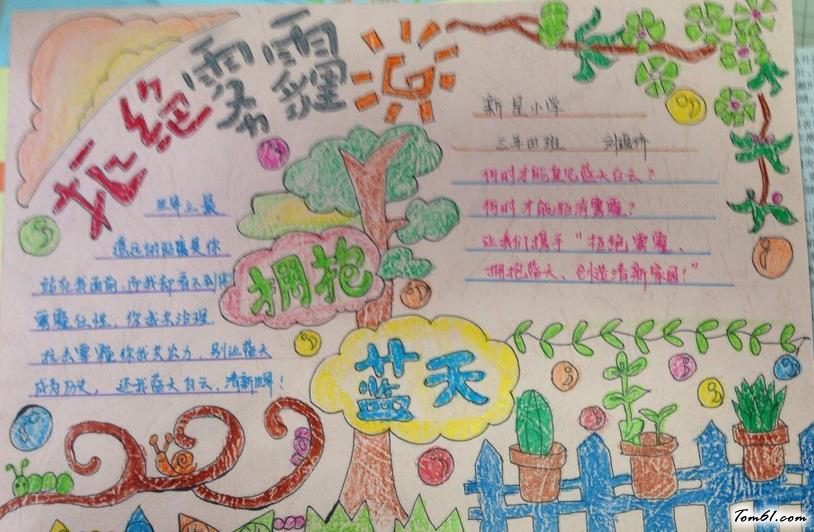 拒绝雾霾
新星小学
三年四班
何时才能重见蓝天白云？
何时才能驱消雾霾？
让我们携手“拒绝雾霾、
拥抱蓝天、创造清新家园！”
世界上最
遥远的距离是你
站在我面前，而我却看不到你
雾霾任性，你我共治理
抗击雾霾你我共尽力，别让蓝天
成为历史，还我蓝天白云，清新世界！
拥抱
蓝天
Tom61.com